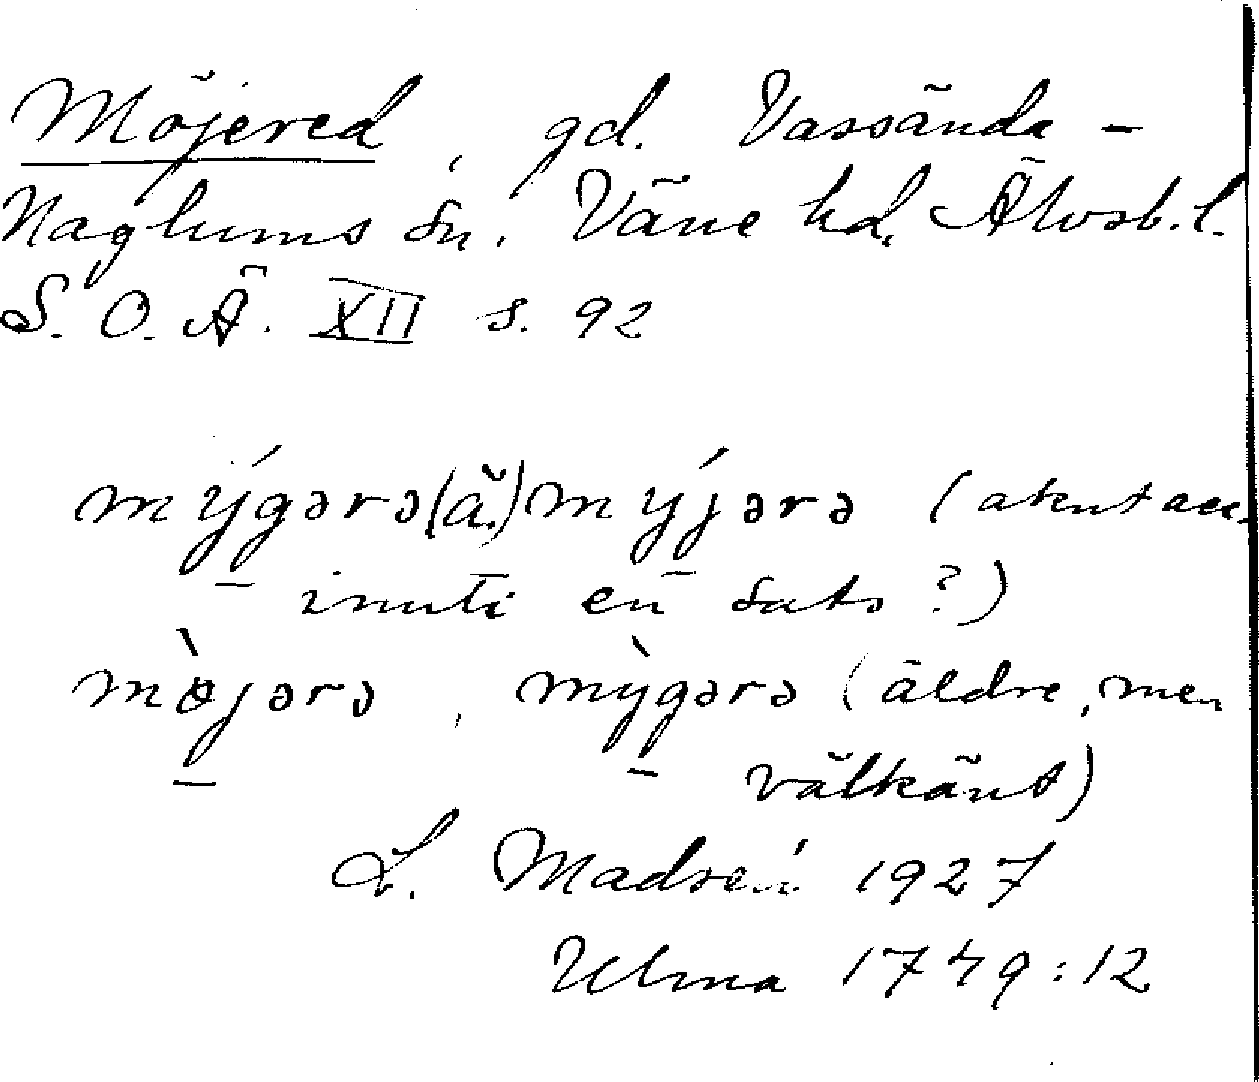 Möjered, gd. Vassända-
Naglums sn. Väne hd. Älvsb. l.
S. O. Ä. XII s. 92
mýgərə (ä.) mýjərə (akut acc.
inuti en sats?)
mø̀jərə, mỳgərə (äldre, men
välkänt)
L. Madsén 1927
Ulma 1749:12